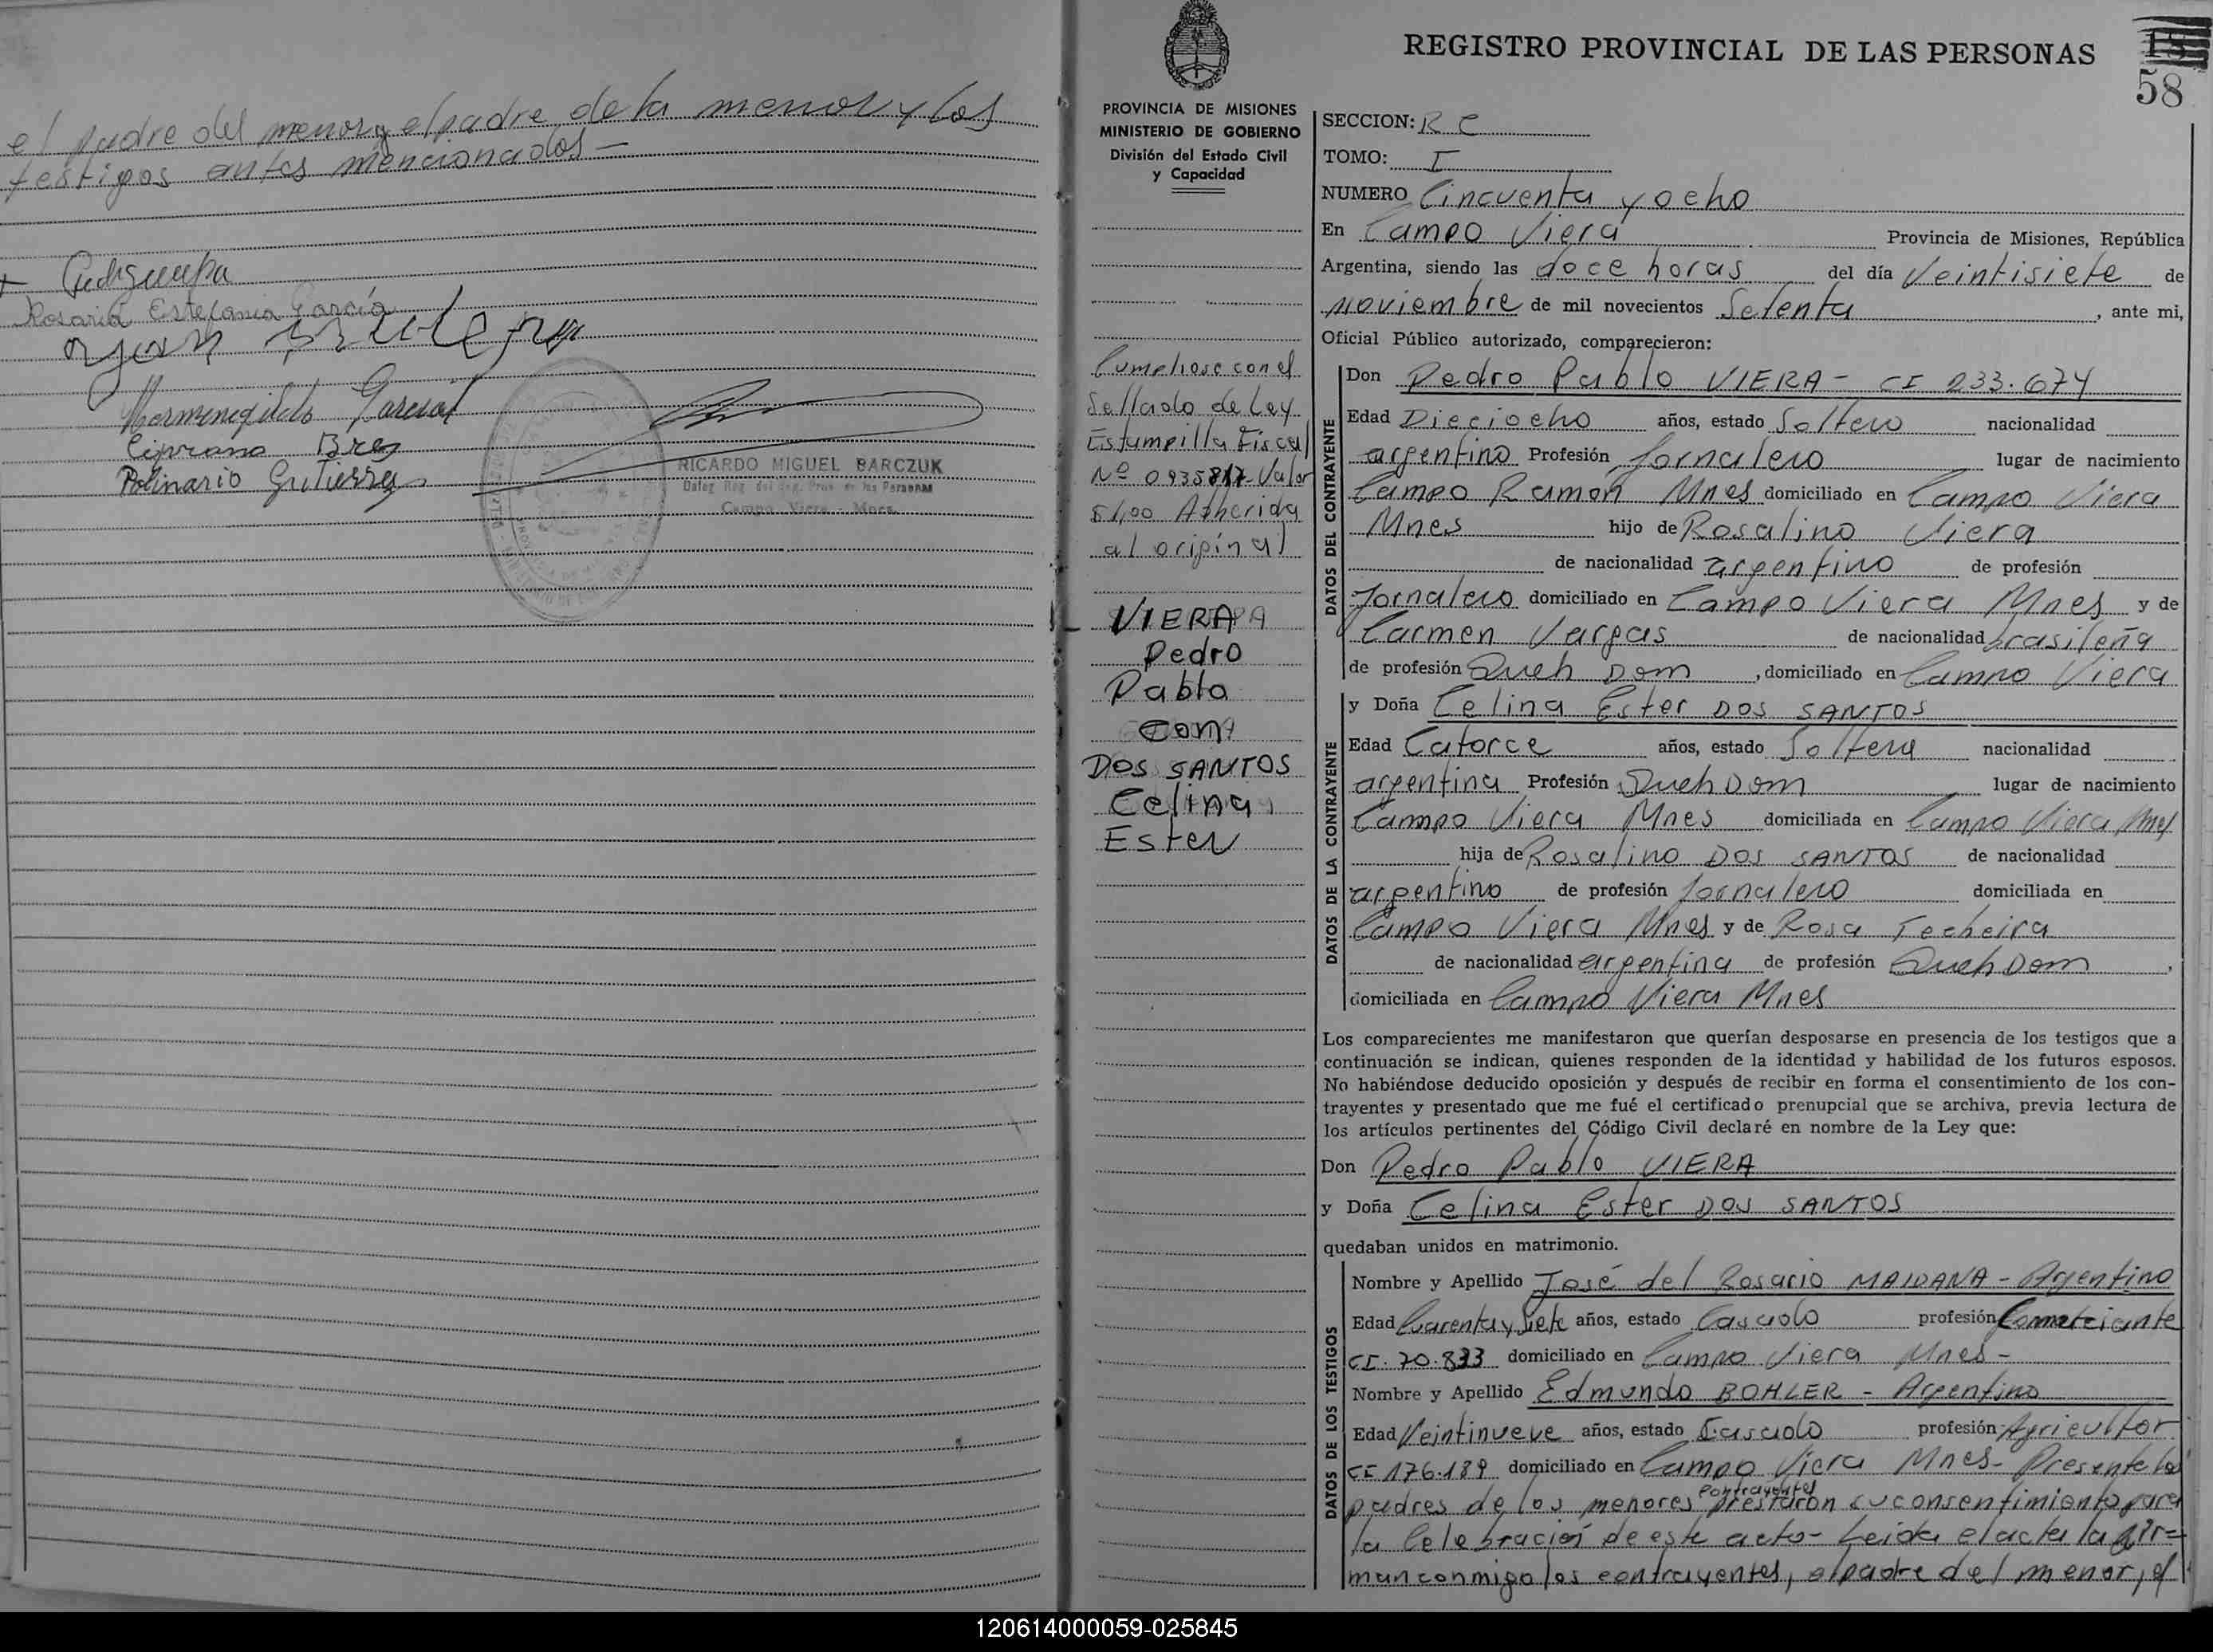 el padre del menor y el padre de la menor y los
testigos antes mencionados —
Rosaria Estefania García
Hermenegildo Garcia
Cipriano Brez
Polinario Gutierrez
RICARDO MIGUEL BARCZUK
Campo Viera - Mnes.
REGISTRO PROVINCIAL DE LAS PERSONAS
58
PROVINCIA DE MISIONES
MINISTERIO DE GOBIERNO
División del Estado Civil
y Capacidad
Cumpliose con el
Sellado de Ley
Estampilla Fiscal
Nº 0935817- Valor
$ 1,00 Adherida
al original
VIERA
Pedro
Pablo
con
DOS SANTOS
Celina
Ester
SECCION: R C
TOMO: I
NUMERO Cincuenta y ocho
En Campo Viera Provincia de Misiones, República
Argentina, siendo las doce horas del día Veintisiete de
noviembre de mil novecientos Setenta, ante mi,
Oficial Público autorizado, comparecieron:
DATOS DEL CONTRAYENTE
Don Pedro Pablo VIERA - CI 233.674
Edad Dieciocho años, estado Soltero nacionalidad
argentino Profesión Jornalero lugar de nacimiento
Campo Ramón Mnes domiciliado en Campo Viera
Mnes hijo de Rosalino Viera
de nacionalidad argentino de profesión
Jornalero domiciliado en Campo Viera Mnes y de
Carmen Vargas de nacionalidad brasileña
de profesión Queh Dom, domiciliado en Campo Viera
DATOS DE LA CONTRAYENTE
y Doña Celina Ester DOS SANTOS
Edad Catorce años, estado Soltera nacionalidad
argentina Profesión Queh Dom lugar de nacimiento
Campo Viera Mnes domiciliada en Campo Viera Mnes
hija de Rosalino DOS SANTOS de nacionalidad
argentino de profesión Jornalero domiciliada en
Campo Viera Mnes y de Rosa Techeira
de nacionalidad argentina de profesión Queh Dom,
domiciliada en Campo Viera Mnes
Los comparecientes me manifestaron que querían desposarse en presencia de los testigos que a
continuación se indican, quienes responden de la identidad y habilidad de los futuros esposos.
No habiéndose deducido oposición y después de recibir en forma el consentimiento de los con-
trayentes y presentado que me fué el certificado prenupcial que se archiva, previa lectura de
los artículos pertinentes del Código Civil declaré en nombre de la Ley que:
Don Pedro Pablo VIERA
y Doña Celina Ester DOS SANTOS
quedaban unidos en matrimonio.
DATOS DE LOS TESTIGOS
Nombre y Apellido José del Rosario MAIDANA - Argentino
Edad Cuarenta y Siete años, estado Casado profesión Comerciante
CI. 70.833 domiciliado en Campo Viera Mnes -
Nombre y Apellido Edmundo BOHLER - Argentino
Edad Veintinueve años, estado Casado profesión Agricultor
CI 176.189 domiciliado en Campo Viera Mnes - Presente los
padres de los menores contrayentes prestaron su consentimiento para
la Celebración de este acto - Leida el acta la fir=
man conmigo los contrayentes, el padre del menor, el
120614000059-025845